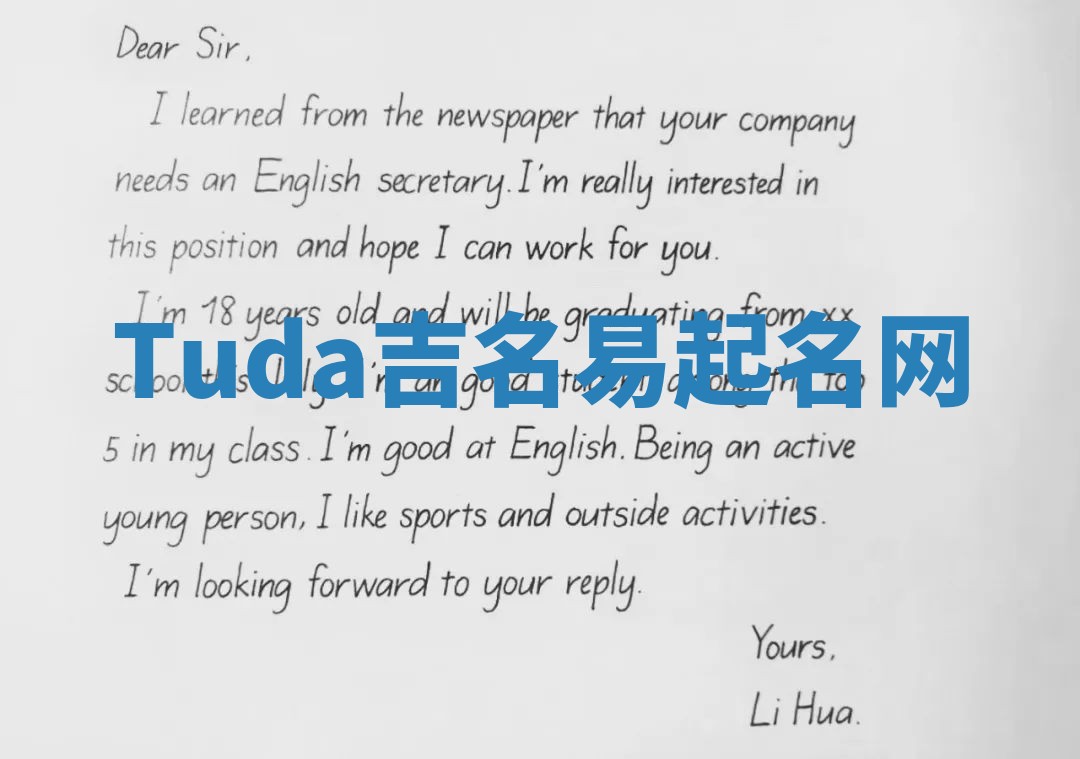 Dear Sir,
I learned from the newspaper that your company
needs an English secretary. I'm really interested in
this position and hope I can work for you.
I'm 18 years old and will be graduating from xx
Tuda吉名易起名网
school this July. I'm an good student among the top
5 in my class. I'm good at English. Being an active
young person, I like sports and outside activities.
I'm looking forward to your reply.
Yours,
Li Hua.